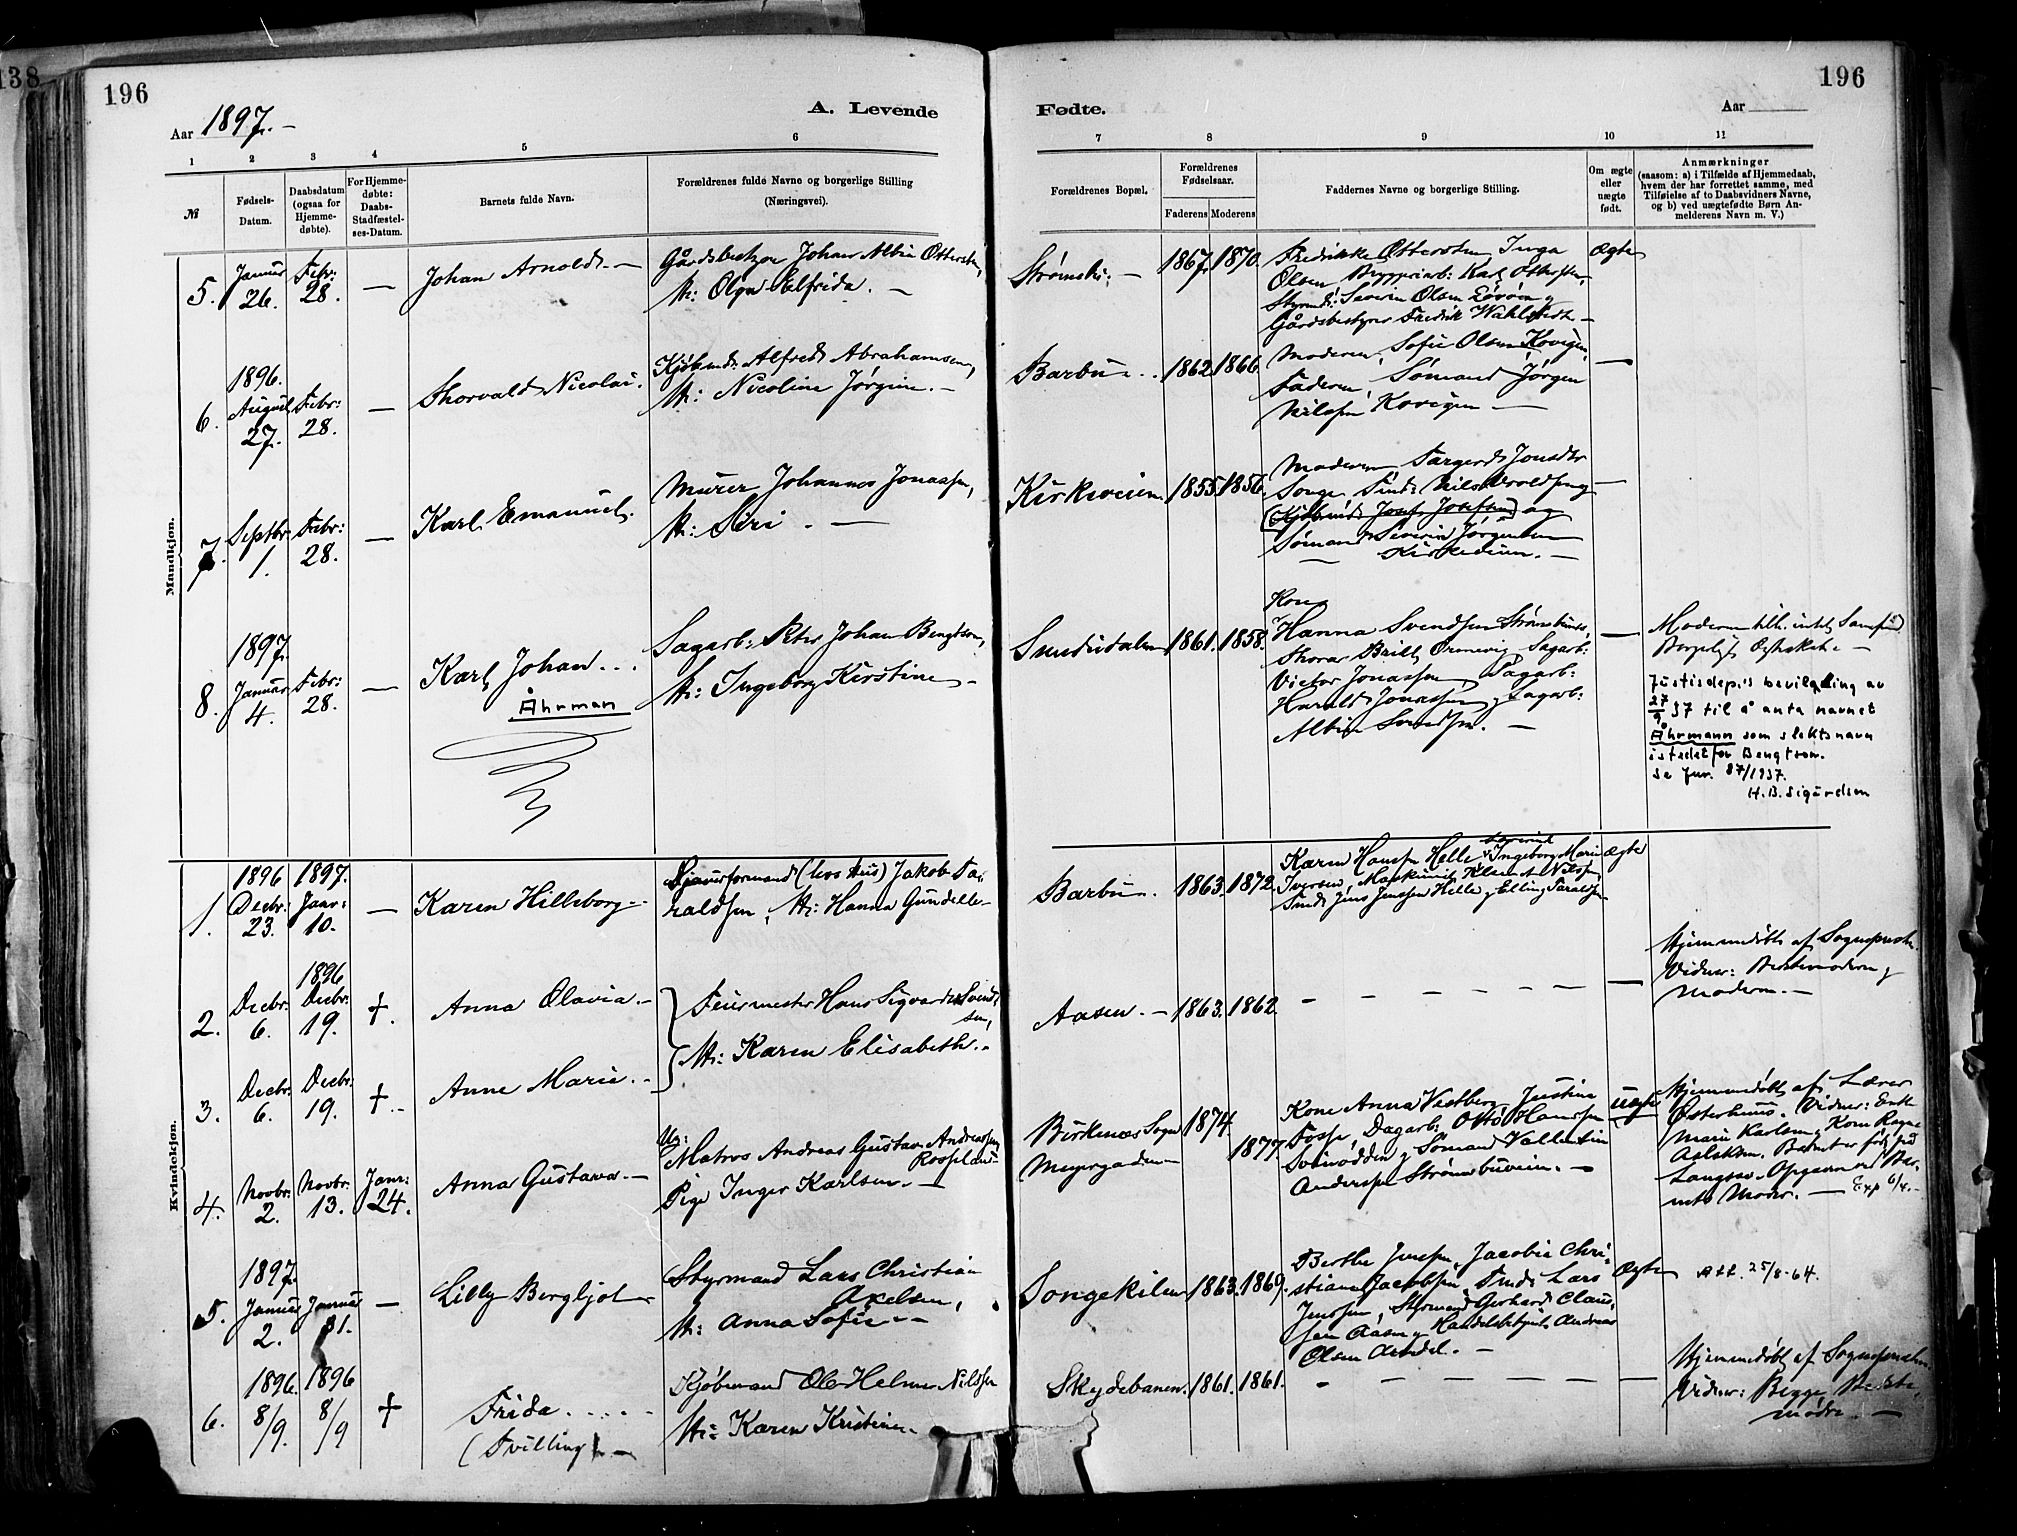 138
196
196
Aar 1897.-
A. Levende
Fødte.
Aar
1 2 3 4 5 6 7 8 9 10 11
№
Fødsels-
Datum.
Daabsdatum
(ogsaa for
Hjemme-
døbte).
For Hjemme-
døbte:
Daabs-
Stadfæstel-
ses-Datum.
Barnets fulde Navn.
Forældrenes fulde Navne og borgerlige Stilling
(Næringsvei).
Forældrenes Bopæl.
Forældrenes
Fødselsaar.
Faderens Moderens
Faddernes Navne og borgerlige Stilling.
Om ægte
eller
uægte
født.
Anmærkninger
(saasom: a) i Tilfælde af Hjemmedaab,
hvem der har forrettet samme, med
Tilføielse af to Daabsvidners Navne,
og b) ved uægtefødte Børn An-
melderens Navn m. V.)
Mandkjøn.
5.
Januar
26.
Febr:
28.
—
Johan Arnold. —
Gårdsbestyrer Johan Albin Ottersen,
H: Olga Elfrida. —
1867. 1870.
Fredrikke Ottersen, Inga
Olsen, Bryggeriarb: Karl Ottersen,
Styrmd: Severin Olsen
Gårdsbestyrer Fredrik
Ægte
6.
1896.
August
27.
Febr:
28.
—
Thorvald Nicolai.
Kjøbmd: Alfred Abrahamsen,
H: Nicoline Jørgine. —
Barbu -.
1862. 1866.
Moderen, Sofie Olsen Kovigen,
Faderen, Sømand Jørgen
Nilssen Kovigen —
—
7.
Septbr.
1.
Febr:
28.
—
Karl Emanuel.
Murer Johannes Jonassen,
H: Siri. —
Kirkeveien
1855. 1856.
Moderen Targerd Jonsdtr
Songe,
(Kjøbmd: Josef Josefsen) og
Sømand Severin Jørgensen
Kirkeveien. —
—
8.
1897.
Januar
4.
Febr:
28.
—
Karl Johan...
Åhrman
Sagarb: Peter Johan Bengtson,
H: Ingeborg Kirstine —
1861. 1858.
Kone
Hanna Svendsen
Sagarb:
Victor Jonassen, Sagarb:
Harald Jonassen, Sagarb:
Albin Svendsen. —
—
Moderen tilh. intet Samfund
Borgerligt Ægteskab. —
Justisdep.s bevilgling av
27/9 37 til å anta navnet
Åhrmann som slektsnavn
istedetfor Bengtson.
Se Jnr. 87/1937.
H.B. Sigurdsen
Kvindekjøn.
1.
1896
Decbr:
23.
1897.
Janr:
10.
—
Karen Hilleborg. -
Jakob Ta-
raldsen, H: Hanna Gundelle -
Barbu.
1863. 1872.
Karen Hansen Helle, Ingeborg Marie
Iversen, Maskinist Klement Nilsen,
Jens Jensen Helle, Elling Taraldsen
Ægte
2.
Decbr.
6.
1896
Decbr:
19.
+.
Anna Olavia. -
Feiermester Hans Sigvard Svend-
sen,
H: Karen Elisabeth. -
Aasen. —
1863. 1862.
—
Hjemmedøbt af Sognepresten.
Vidner: Bedstemoderen
Moderen. —
3.
Decbr.
6.
Decbr:
19.
+.
Anne Marie. -
4.
Novbr.
2.
Novbr:
13.
Janr:
24.
Anna Gustava. —
Ug:
Matros Andreas Gustav Andreassen
Pige Inger Karlsen. —
Birkenæs Sogn
Meyergaden
1874.
1877
Kone Anna Vestberg, Justine
Fosse, Dagarb: Otto Hanssen
Sømand Vallentin
Andersen Strømsbuveien. —
uægte
Hjemmedøbt af Lærer
Østerhuus. Vidner: Enke
Marie Karlsen, Kone
Barnet er født på
Langsæ. Opgaven ved Bar-
nets Moder. —
5.
1897.
Januar
2.
Januar
31.
—
Lilly Bergljot
Styrmand Lars Christian
Axelsen,
H: Anna Sofie. -
Songekilen
1863. 1869.
Berthe Jensen, Jacobia Chri-
stiane Jacobsen, Lars
Jenssen, Styrmand Gerhard Claus-
sen Aasen, Handelsbetjent Andreas
Olsen Arendal. —
Ægte
Att. 25/8-64.
6.
1896.
8/9.
1896
8/9
+
Frida.....
(Tvilling) -
Kjøbmand Ole Helmer Nilssen
H: Karen Kristine. -
Skydebanen.
1861. 1861.
—
Hjemmedøbt af Sognepresten.
Vidner: Begge Bedste-
mødre. —